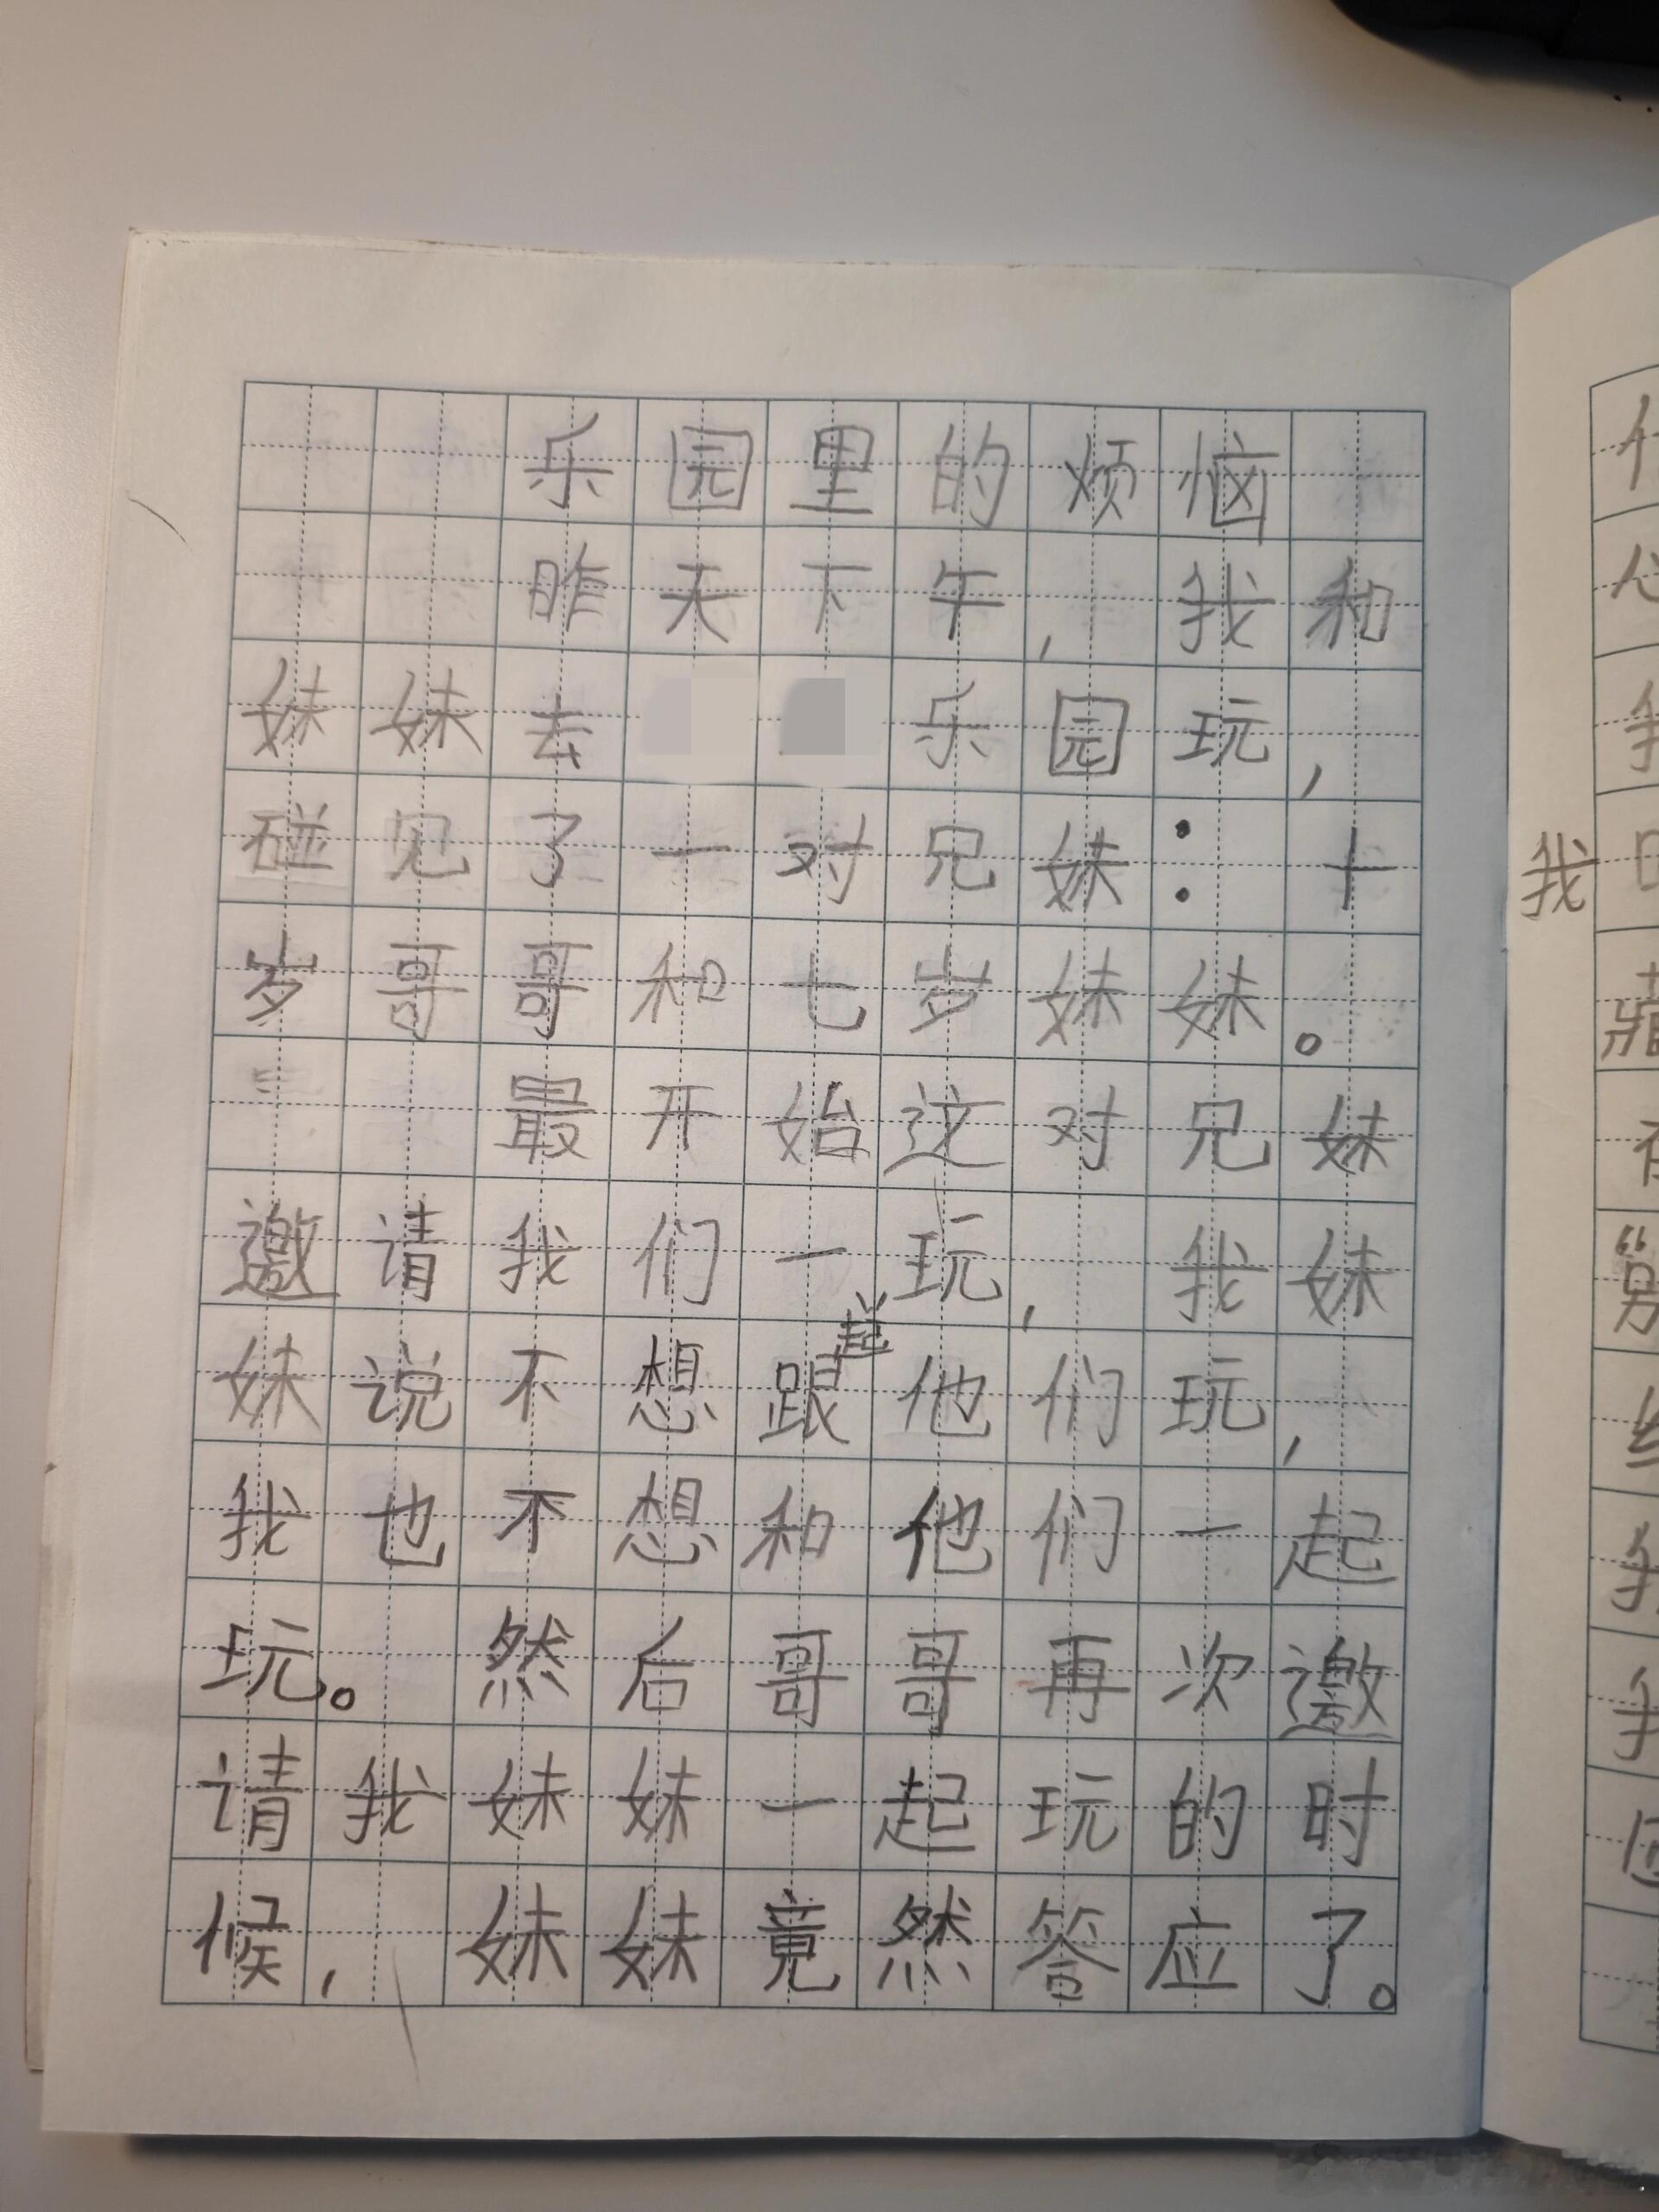 乐园里的烦恼
昨天下午，我和
妹妹去乐园玩，
碰见了一对兄妹：十
岁哥哥和七岁妹妹。
最开始这对兄妹
邀请我们一起玩，我妹
妹说不想跟他们玩，
我也不想和他们一起
玩。然后哥哥再次邀
请我妹妹一起玩的时
候，妹妹竟然答应了。
我